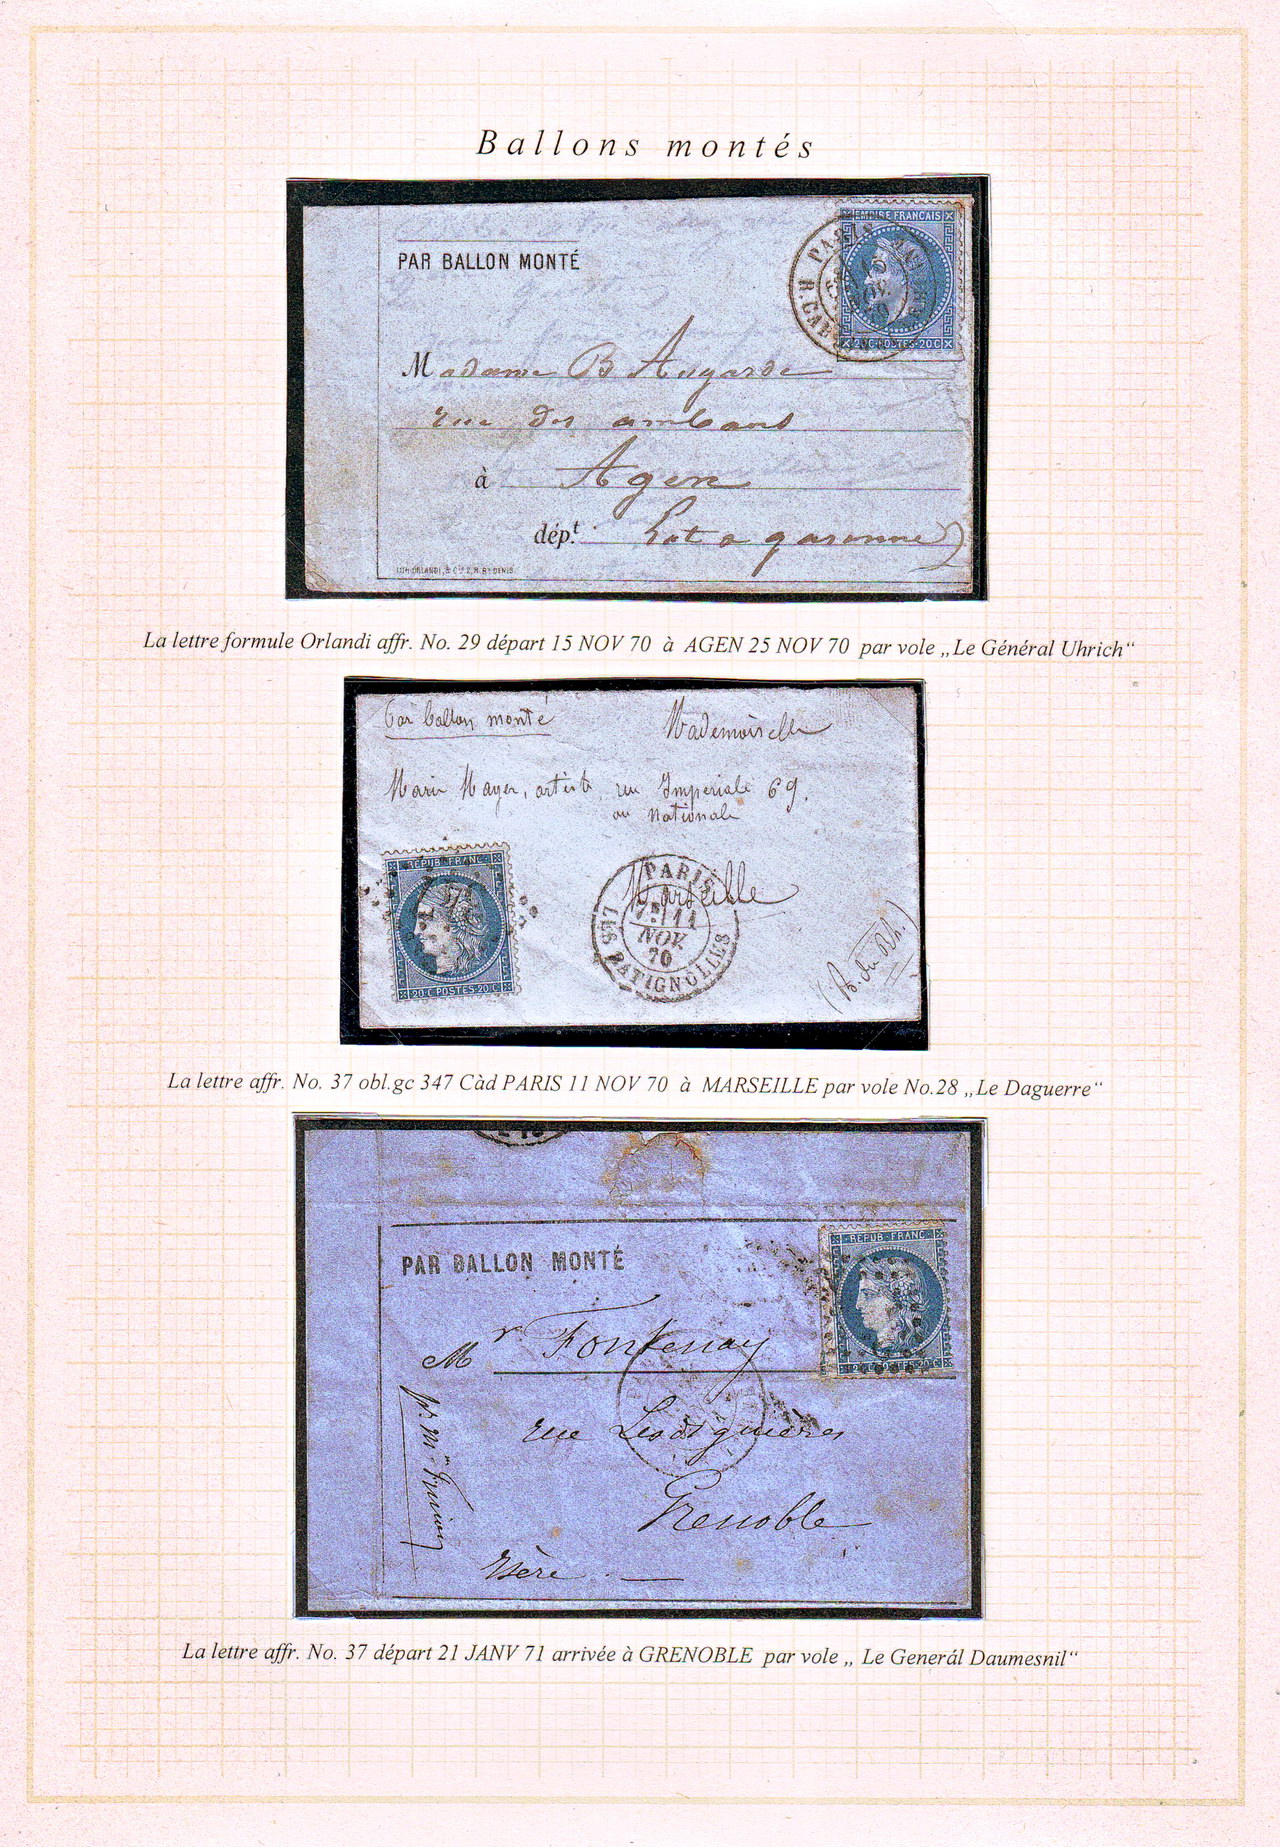 Ballons montés
PAR BALLON MONTÉ
EMPIRE FRANÇAIS
PARIS
15
NOV.
70
20 C POSTES 20 C
Madame B Augarde
rue des ambans
à Agen
dép.t Lot & garonne)
LITH. ORLANDI, & Cie 2, R. St DENIS.
La lettre formule Orlandi affr. No. 29 départ 15 NOV 70 à AGEN 25 NOV 70 par vole „Le Général Uhrich“
Par ballon monté
Mademoiselle
Marie Mayer, artiste, rue Impériale 69.
ou Nationale
Marseille
REPUB. FRANC.
20 C POSTES 20 C
PARIS
11
NOV.
70
LES BATIGNOLLES
(B. du Rh.)
La lettre affr. No. 37 obl.gc 347 Càd PARIS 11 NOV 70 à MARSEILLE par vole No.28 „Le Daguerre“
PAR BALLON MONTÉ
REPUB. FRANC.
Mr Fontenay
rue Lesdiguières
Grenoble
Isère
La lettre affr. No. 37 départ 21 JANV 71 arrivée à GRENOBLE par vole „ Le Generál Daumesnil“